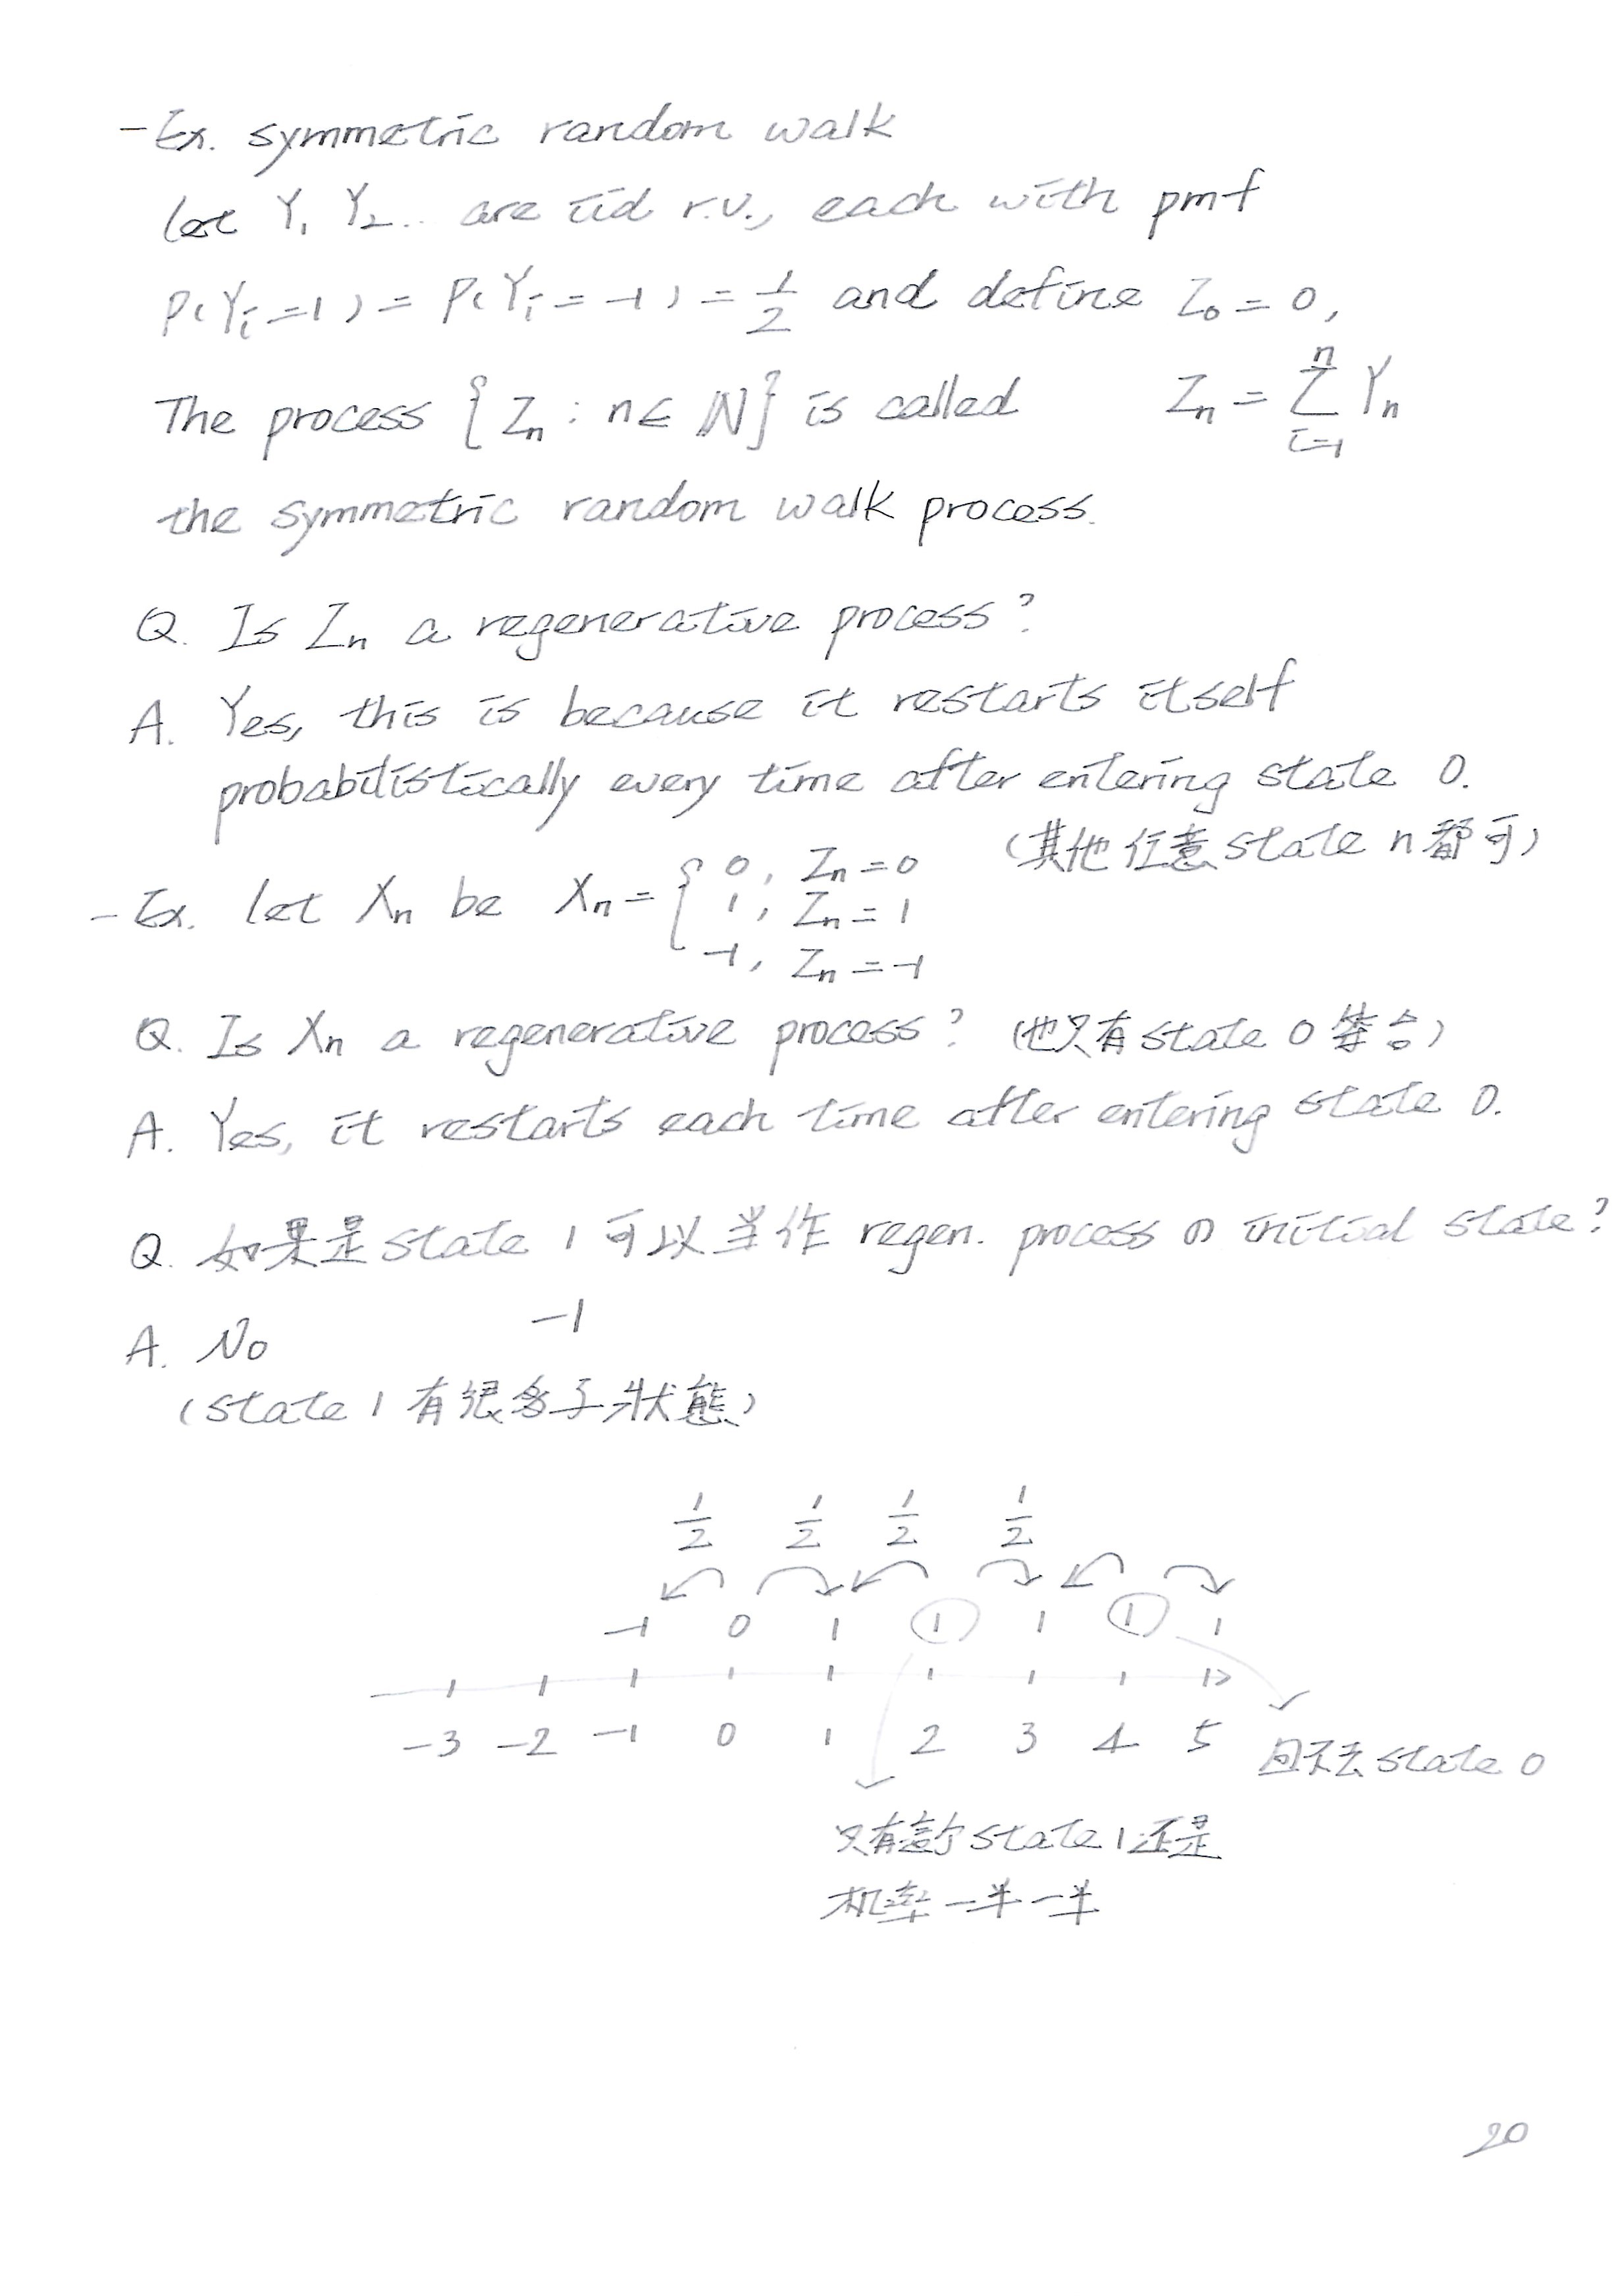 -Ex. symmetric random walk
let Y₁ Y₂.. are iid r.v., each with pmf
P(Yᵢ=1) = P(Yᵢ=-1) = 1/2 and define Z₀=0,
The process {Zₙ : n∈ℕ} is called Zₙ = Σᵢ₌₁ⁿ Yₙ
the symmetric random walk process.
Q. Is Zₙ a regenerative process?
A. Yes, this is because it restarts itself
probabilistically every time after entering state 0.
(其他任意state n都可)
-Ex. let Xₙ be Xₙ = { 0, Zₙ=0
1, Zₙ=1
-1, Zₙ=-1
Q. Is Xₙ a regenerative process? (也只有state 0符合)
A. Yes, it restarts each time after entering state 0.
Q. 如果是state 1可以当作regen. process の initial state?
-1
A. No
(state 1有很多子狀態)
1/2 1/2 1/2 1/2
-1 0 1 1 1 1 1
-3 -2 -1 0 1 2 3 4 5
回不去state 0
只有這个state 1还是
机率一半一半
20